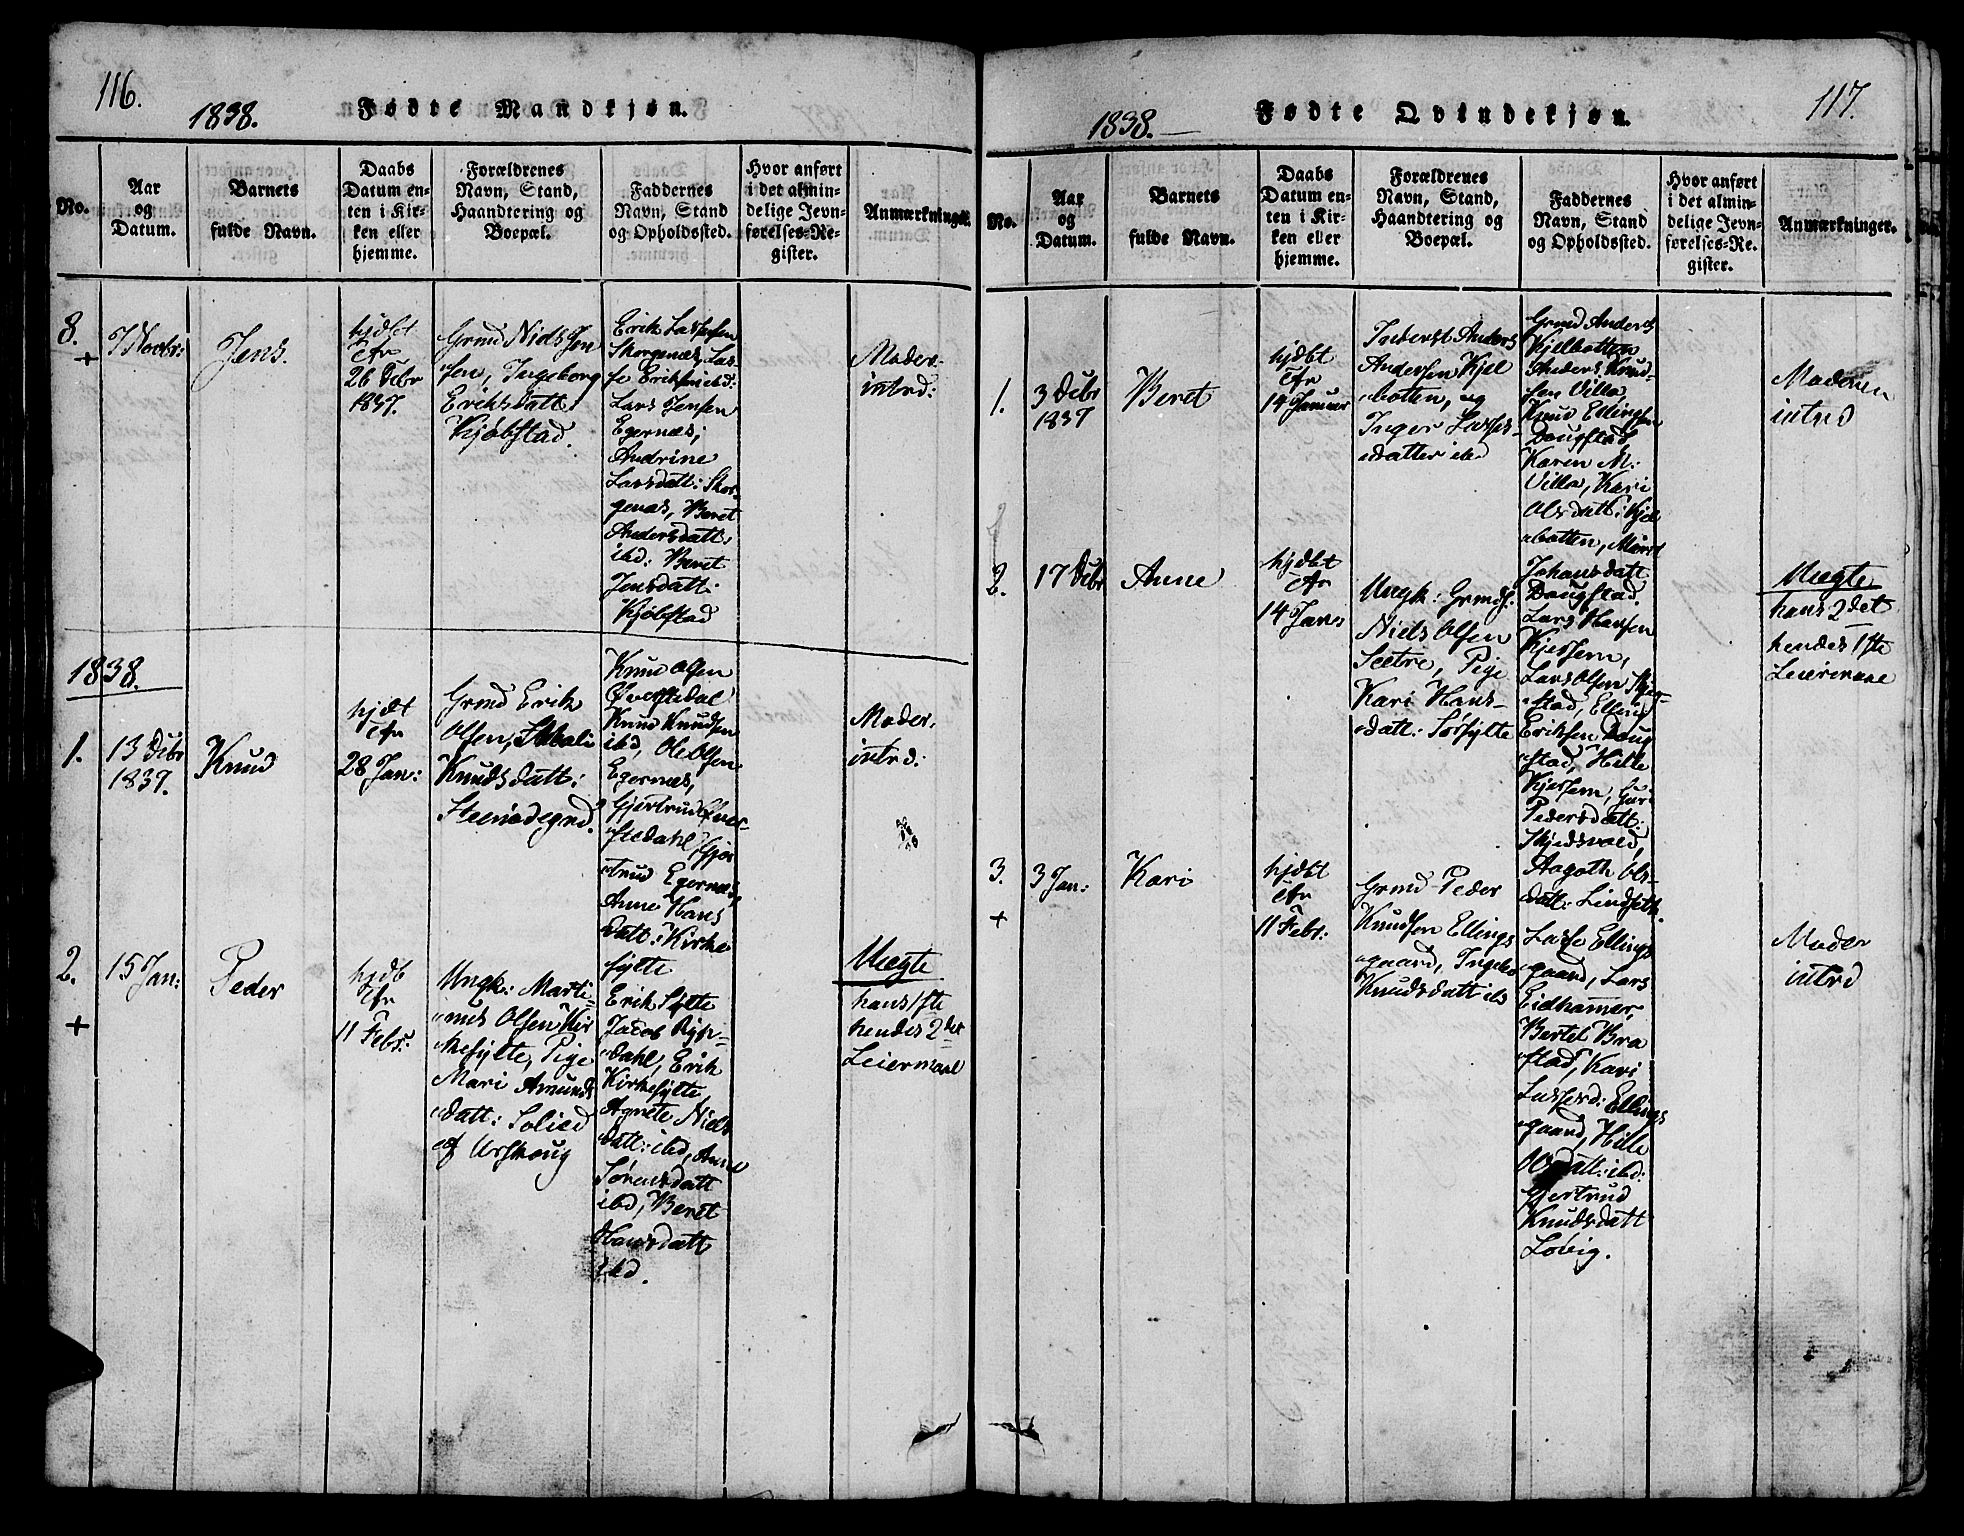 116.
1838.
Fødte Mandkjøn.
No.
Aar
og
Datum.
Barnets
fulde Navn.
Daabs
Datum en-
ten i Kir-
ken eller
hjemme.
Forældrenes
Navn, Stand,
Haandtering og
Boepæl.
Faddernes
Navn, Stand
og Opholdssted.
Hvor anført
i det almin-
delige Jevn-
førelses-Re-
gister.
Anmærkninger.
8.
+
7 Novbr:
Jens.
hjdbt
Cfr
26 Debr
1837.
Grmd Niels Jen
sen, Ingeborg
Eriksdatt:
Kjøbstad.
Erik Lassesen
Skorgenæs, Las-
se Eriksen ibd:
Lars Jensen
Egernæs;
Andrine
Larsdatt: Skor-
genæs, Beret
Andersdatt:
ibd: Beret
Jensdatt:
Kjøbstad
Moder:
intrd:
1838.
1.
13 Debr
1837.
Knud
hjdt
Cfr
28 Jan:
Grmd Erik
Olsen,
Knudsdatt:
Knud Olsen
Øverstedal
Knud Knudsen
ibd, Ole Olsen
Egernæs,
Gjertrud Øver-
stedahl, Gjer
trud Egernæs,
Anne Hans
datt: Kirke
fylte
Moder.
intrd:
2.
+
15 Jan:
Peder
hjdb
Cfr
11 Febr:
Ungk: Marti-
nus Olsen Kir
kefylte, Pige
Mari Amunds
datt: Solied
af Urskoug
Erik Sylte
Jacob
dahl, Erik
Kirkefylte
Agnete Niels
datt: ibd, Anne
Sørensdatt
ibd, Beret
Hansdatt
ibd.
Uægte
hans 1ste
hendes 2det
Leiermaal
117.
1838.
Fødte Qvindekjøn.
No.
Aar
og
Datum.
Barnets
fulde Navn.
Daabs
Datum en-
ten i Kir-
ken eller
hjemme.
Forældrenes
Navn, Stand,
Haandtering og
Boepæl.
Faddernes
Navn, Stand
og Opholdssted.
Hvor anført
i det almin-
delige Jevn-
førelses-Re-
gister.
Anmærkninger.
1.
3 Debr
1837
Beret
hjdbt
Cfr
14 Januar
Inderst Anders
Andersen Kjel
botten, og
Inger Lasses-
datter ibd
Grmd Anders
Kjelbotten
Anders Knud-
sen Villa,
Knud Ellingsen
Dougstad,
Karen M:
Villa, Kari
Olsdatt: Kjel
botten, Marit
Johansdatt
Dougstad.
Moderen
intrd
2.
17 Debr
Anne
hjdbt
Cfr
14 Jan:
Ungk: Grmds:
Niels Olsen
Sætre, Pige
Kari Hans-
datt: Sørfylte
Lars Hansen
Kjersem,
Lars Olsen Skjer-
stad, Elling
Eriksen Doug
stad, Hille
Kjersem, Guri
Pedersdatt:
Skjedsvold,
Aagoth Ols-
datt: Lindseth.
Uægte
hans 2det
hendes 1ste
Leiermaal
3.
+
3 Jan:
Kari
hjdbt
Cfr
11 Febr:
Grmd Peder
Knudsen Ellings
gaard, Ingebo
Knudsdatt ibd
Lasse Ellings
gaard, Lars
Eidhamer,
Bertel Bra
stad, Kari
Lassesd: Ellings
gaard, Hille
Olsdatt: ibd:
Gjertrud
Knudsdatt
Løvig.
Moder
intrd